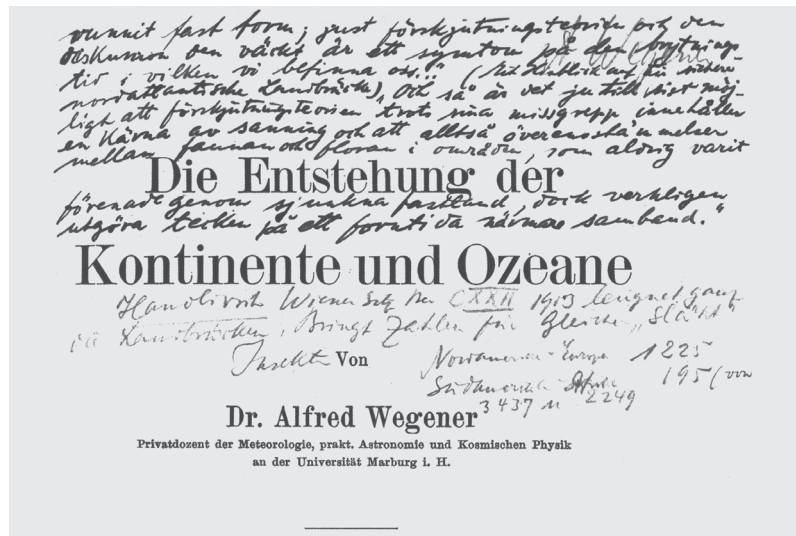 vunnit fast form; just förskjutningsteorien och den
diskussion den väckt är ett symtom på den brytnings-
tid i vilken vi befinna oss..." (Mit Hinblick auf die sichere
nordatlantische Landbrücke), Och så är det ju till sist möj-
ligt att förskjutningsteorien trots sina missgrepp innehåller
en kärna av sanning och att alltså överensstämmelser
mellan faunan och floran i områden, som aldrig varit
Die Entstehung der
förenade genom sjunkna fastland, dock verkligen
utgöra tecken på ett forntida närmare samband."
Kontinente und Ozeane
Handlirsch Wiener CXXII 1913 leugnet ganz
die Landbrücken, Bringt Zahlen für gleiche
Insekten Von Nordamerika-Europa 1225
Südamerika-Afrika 195 (von
3437 u 2249
Dr. Alfred Wegener
Privatdozent der Meteorologie, prakt. Astronomie und Kosmischen Physik
an der Universität Marburg i. H.